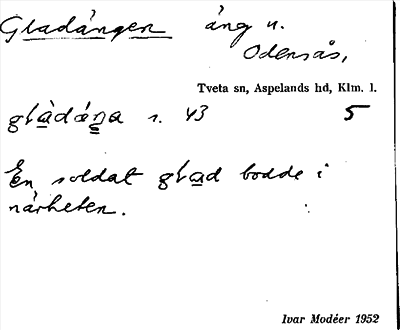 Gladängen äng n.
Odensås,
Tveta sn, Aspelands hd, Klm. l.
glàdáŋa s. 43 5
En soldat glad bodde i
närheten.
Ivar Modéer 1952